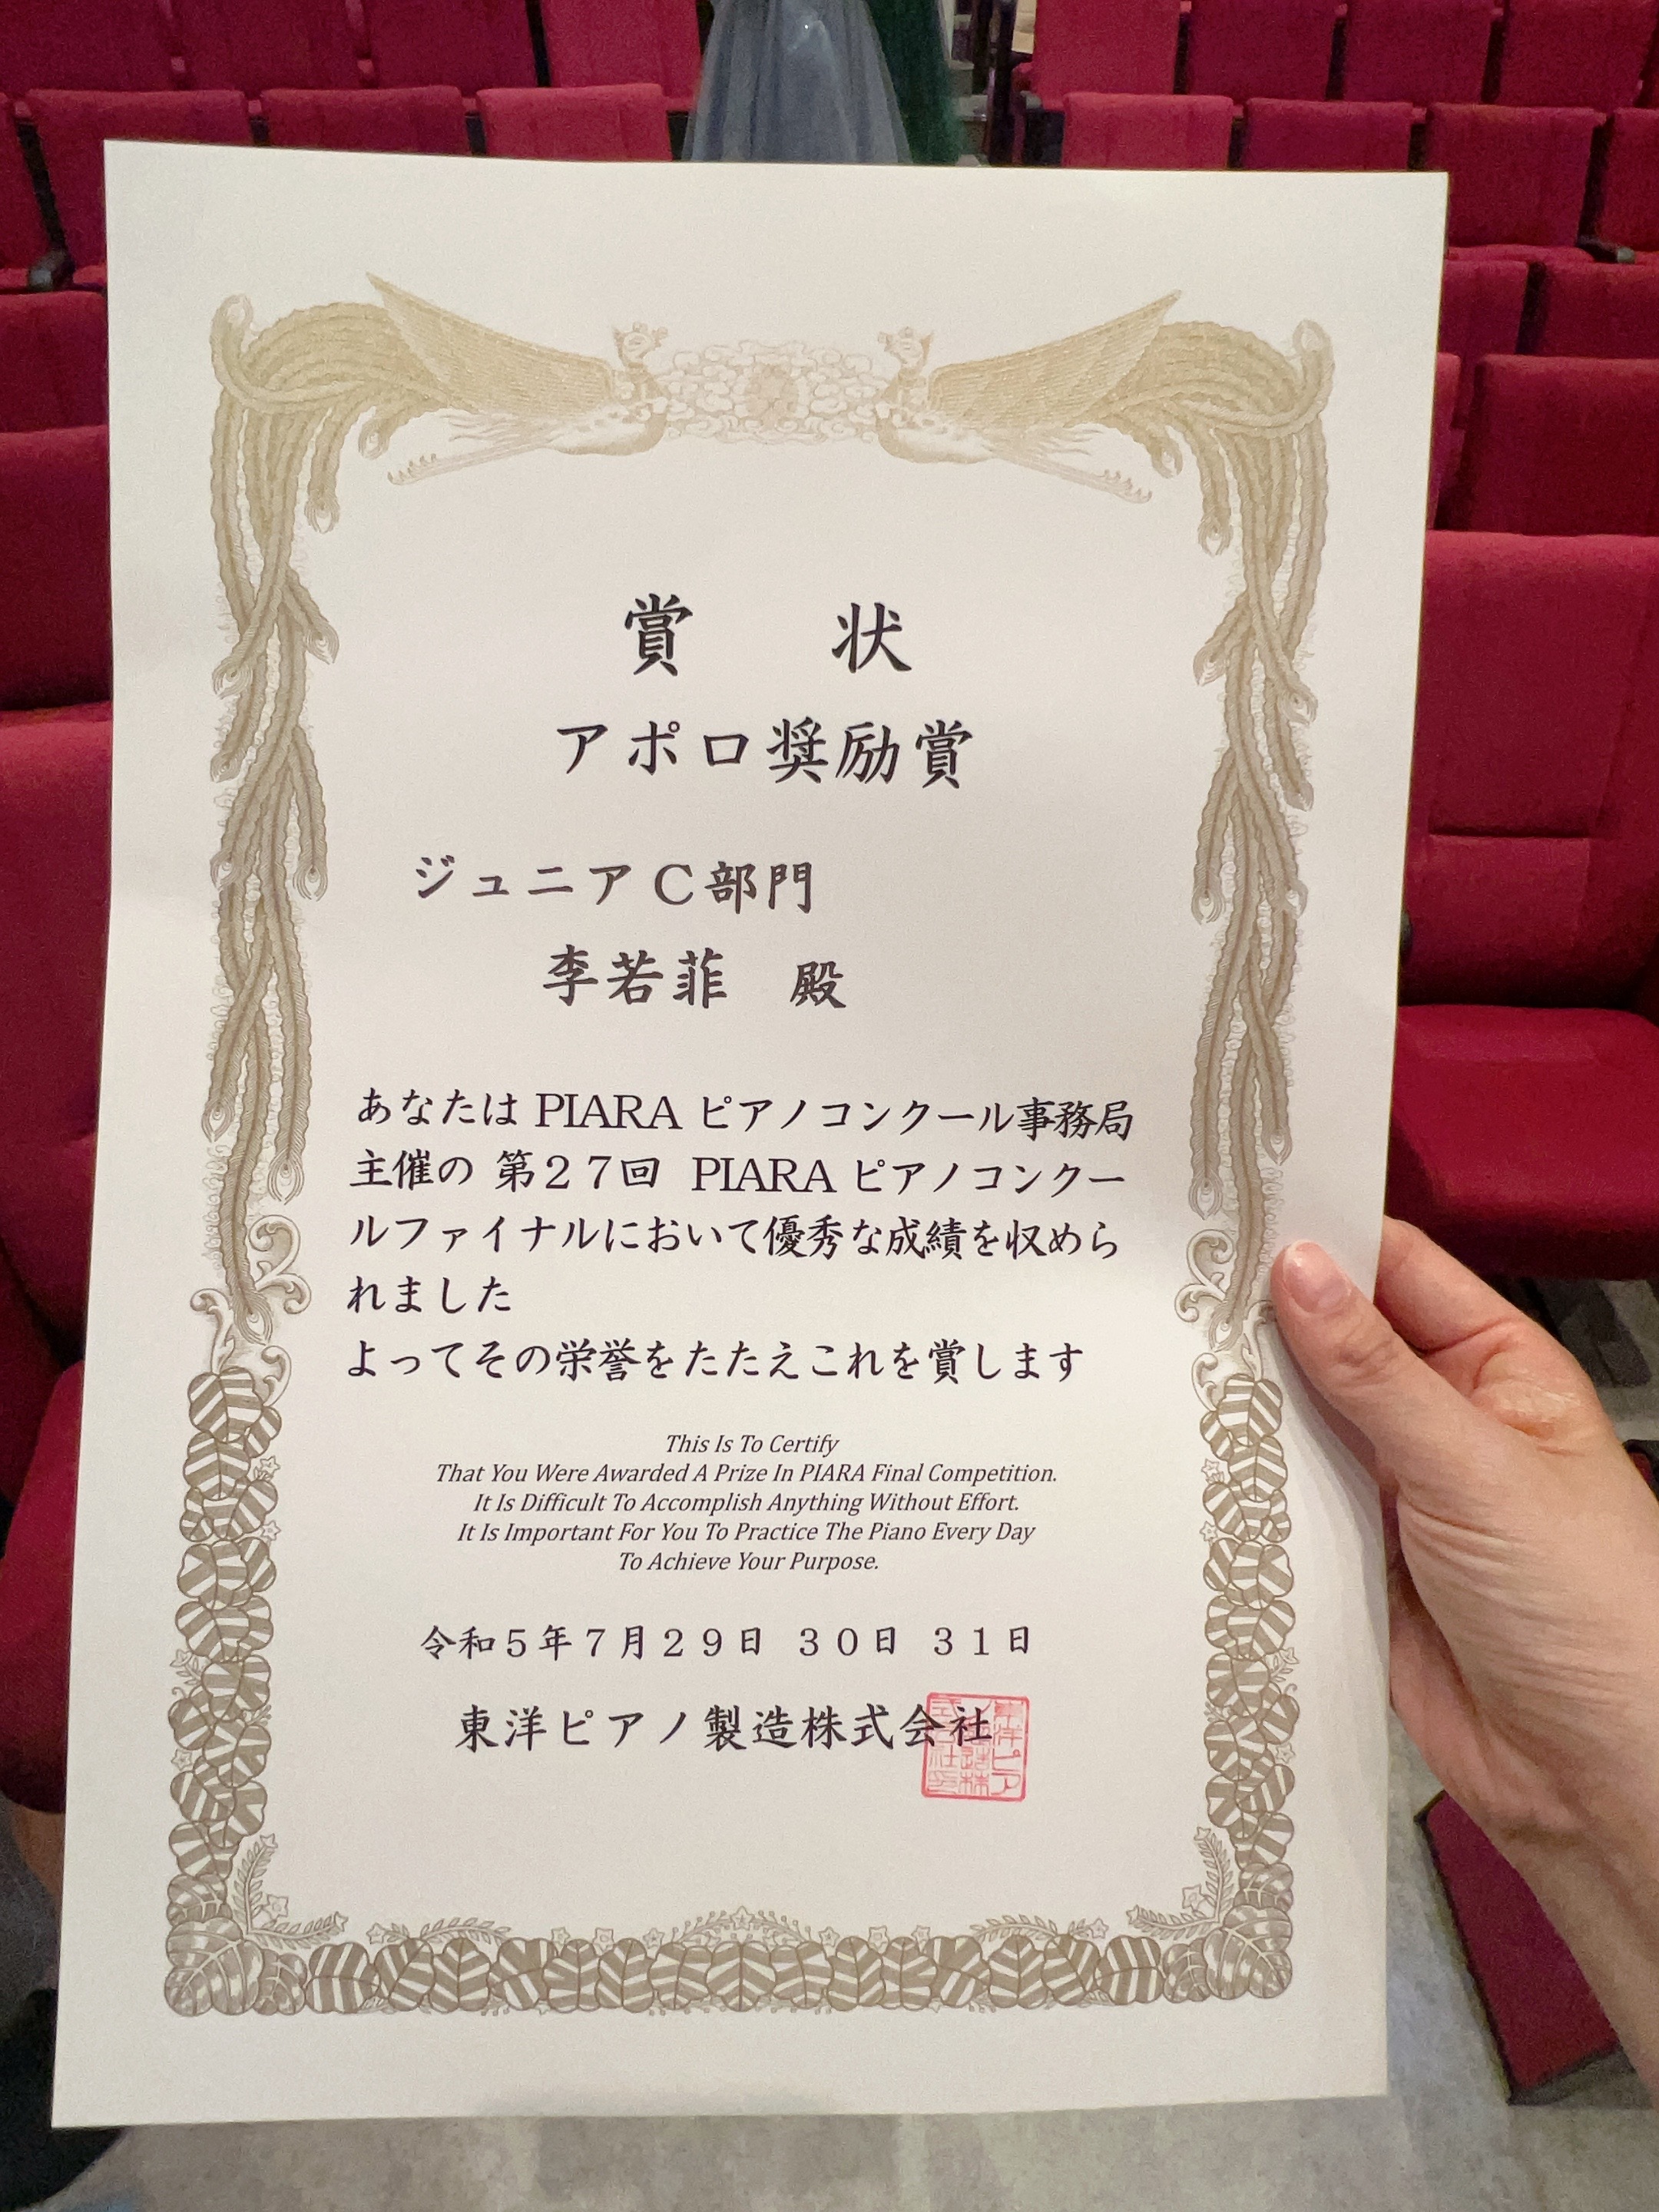 賞 状
アポロ奨励賞
ジュニアC部門
李若菲 殿
あなたは PIARA ピアノコンクール事務局
主催の 第27回 PIARA ピアノコンクー
ルファイナルにおいて優秀な成績を収めら
れました
よってその栄誉をたたえこれを賞します
This Is To Certify
That You Were Awarded A Prize In PIARA Final Competition.
It Is Difficult To Accomplish Anything Without Effort.
It Is Important For You To Practice The Piano Every Day
To Achieve Your Purpose.
令和5年7月29日 30日 31日
東洋ピアノ製造株式会社